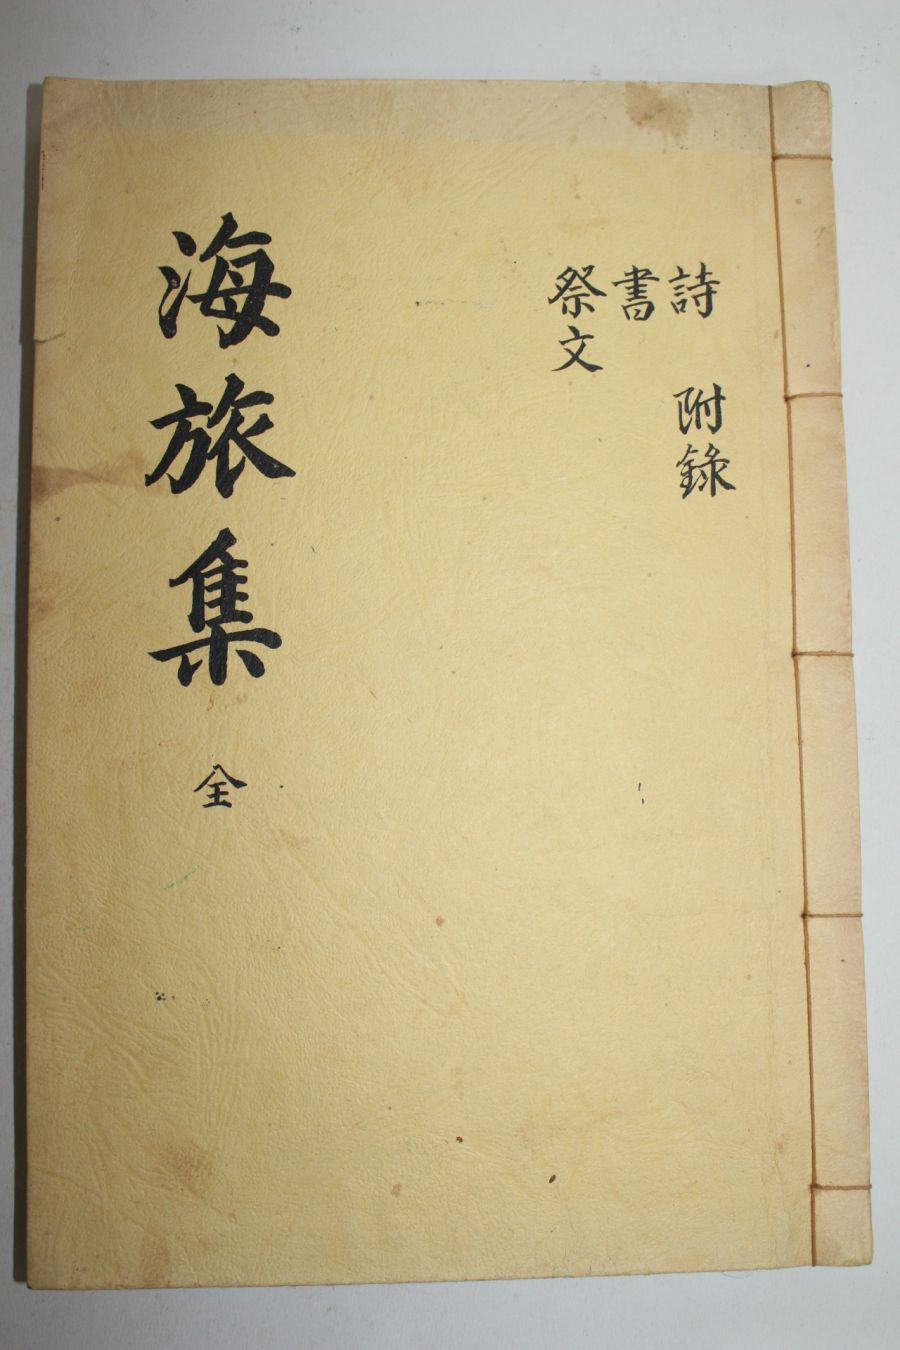 詩 附錄
書
祭文
海旅集 全